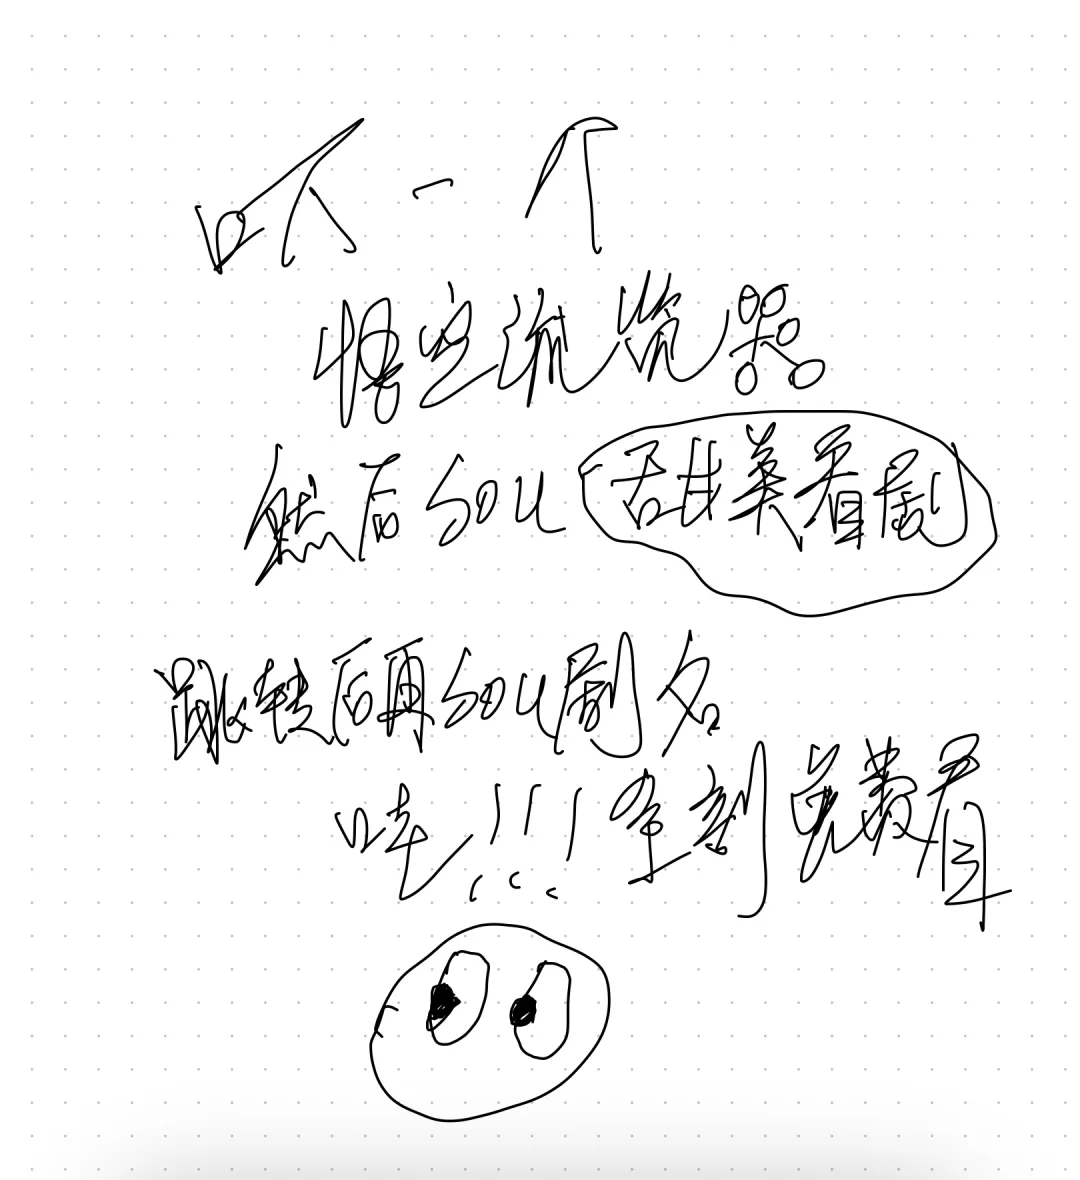 吥一个
悟空浏览器
然后sou甜美看剧
跳转后再sou剧名
哇!!!全剧免费看